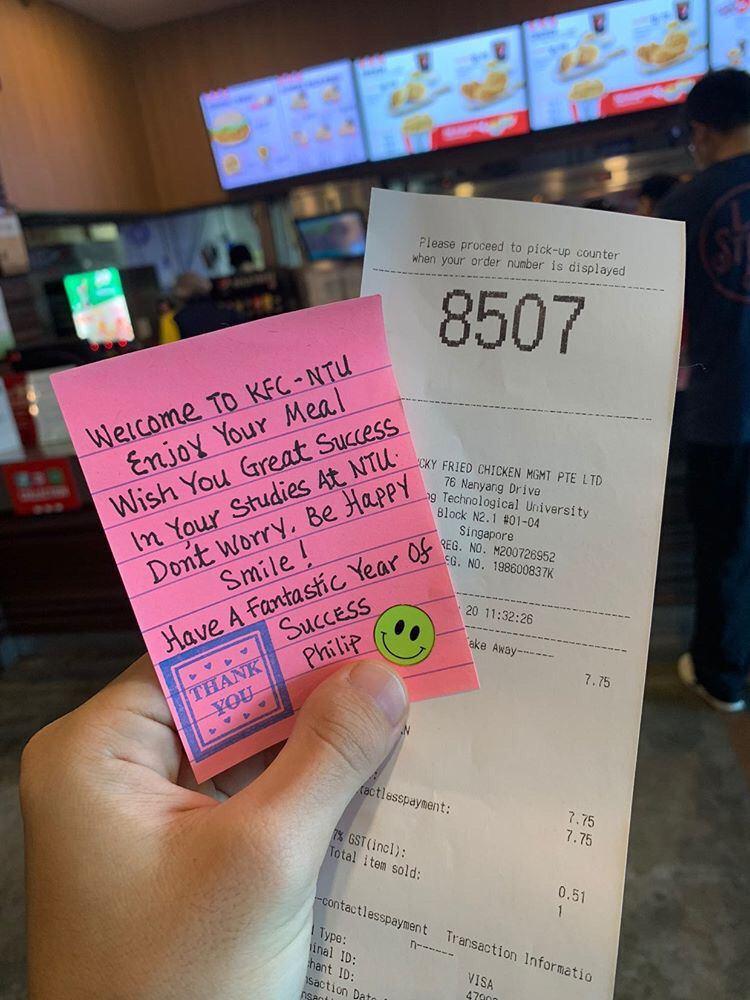 Welcome To KFC-NTU
Enjoy Your Meal
Wish You Great Success
In Your Studies At NTU.
Don't Worry, Be Happy
Smile!
Have A Fantastic Year Of
Success
Philip
THANK
YOU
Please proceed to pick-up counter
when your order number is displayed
8507
CKY FRIED CHICKEN MGMT PTE LTD
76 Nanyang Drive
Technological University
Block N2.1 #01-04
Singapore
REG. NO. M200726952
EG. NO. 198600837K
20 11:32:26
ake Away------
7.75
actlesspayment: 7.75
7.75
7% GST(incl): 0.51
Total item sold: 1
--contactlesspayment Transaction Informatio
n------
Type: VISA
inal ID:
hant ID: